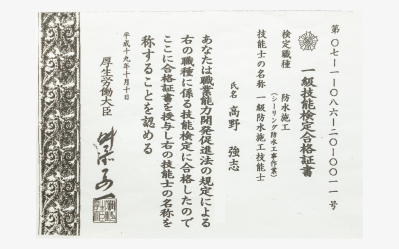 第０７－１－０８６－２０－００１１号
一級技能検定合格証書
検定職種　防水施工
（シーリング防水工事作業）
技能士の名称　一級防水施工技能士
氏名　高野　強志
あなたは職業能力開発促進法の規定による
右の職種に係る技能検定に合格したので
ここに合格証書を授与し右の技能士の名称を
称することを認める
平成十九年十月十日
厚生労働大臣